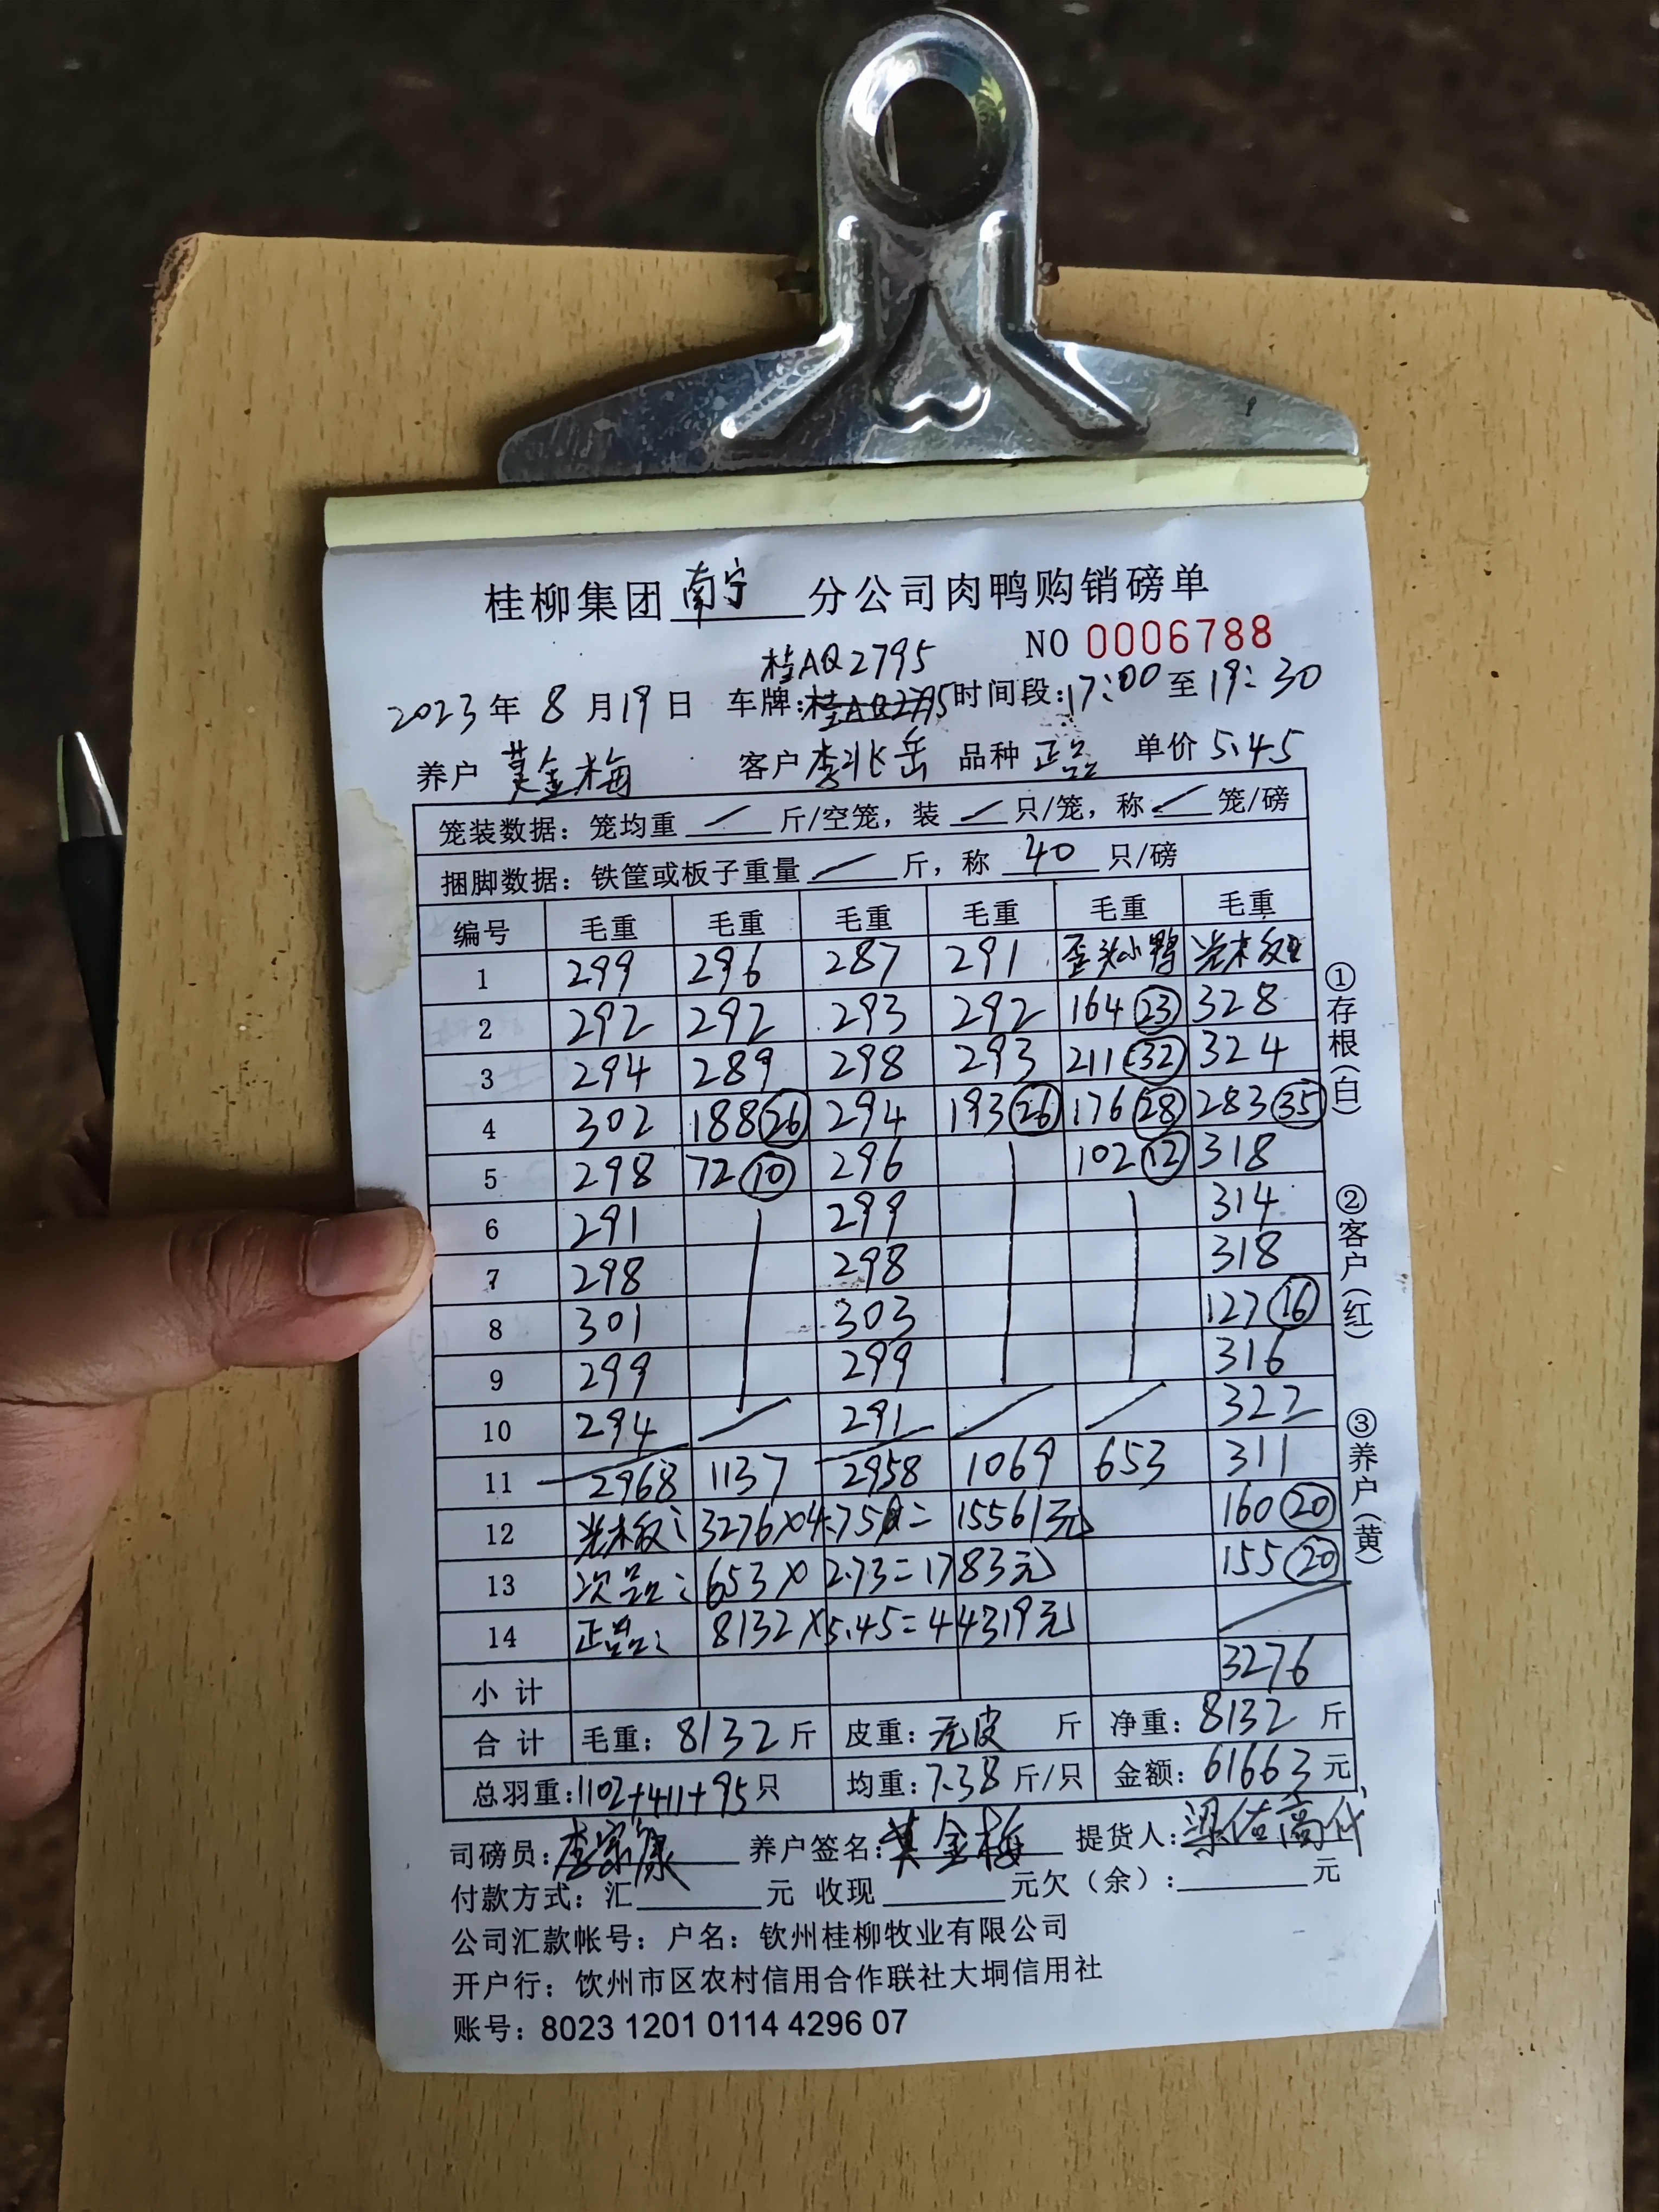 桂柳集团南宁分公司肉鸭购销磅单
NO 0006788
桂AQ2795
2023年8月19日 车牌:桂AQ2795 时间段:17:00至19:30
养户 莫金梅 客户 李兆岳 品种 正品 单价5.45
笼装数据:笼均重 / 斤/空笼,装 / 只/笼,称 / 笼/磅
捆脚数据:铁筐或板子重量 / 斤,称 40 只/磅
编号 毛重 毛重 毛重 毛重 毛重 毛重
1 299 296 287 291 歪头小鸭 光木板
2 292 292 293 292 164 23 328
3 294 289 298 293 211 32 324
4 302 188 26 294 193 26 176 28 283 35
5 298 72 10 296 102 12 318
6 291 299 314
7 298 298 318
8 301 303 127 16
9 299 299 316
10 294 291 322
11 2968 1137 2958 1069 653 311
12 光木板: 3276×4.75= 15561元 160 20
13 次品: 653×2.73=1783元 155 20
14 正品: 8132×5.45=44319元
小计 3276
合计 毛重:8132斤 皮重:无皮 斤 净重:8132斤
总羽重:1102+411+95只 均重:7.38斤/只 金额:61663元
司磅员:李家康 养户签名:莫金梅 提货人:梁佑高代
付款方式:汇 元 收现 元欠(余): 元
公司汇款帐号:户名:钦州桂柳牧业有限公司
开户行:饮州市区农村信用合作联社大垌信用社
账号:8023 1201 0114 4296 07
①存根(白)
②客户(红)
③养户(黄)